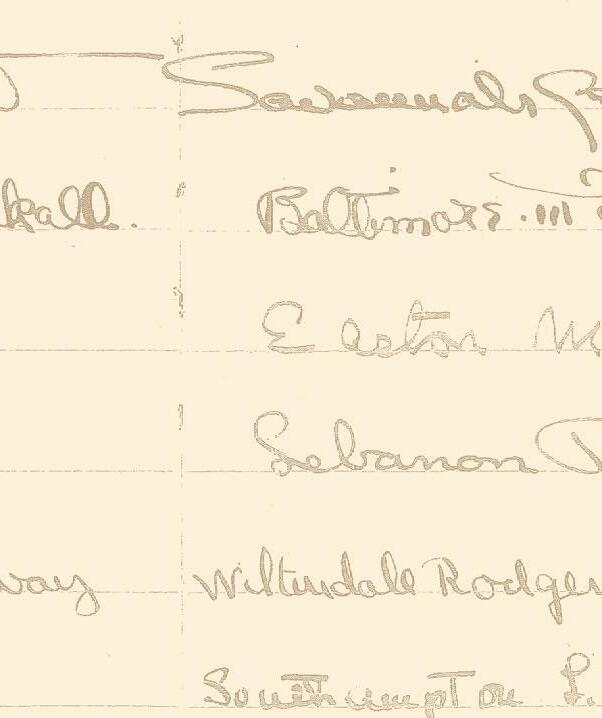 Savannah
kall. Baltimore.
Easton
Lebanon
way Wiltendale Rodger
Southampton L.